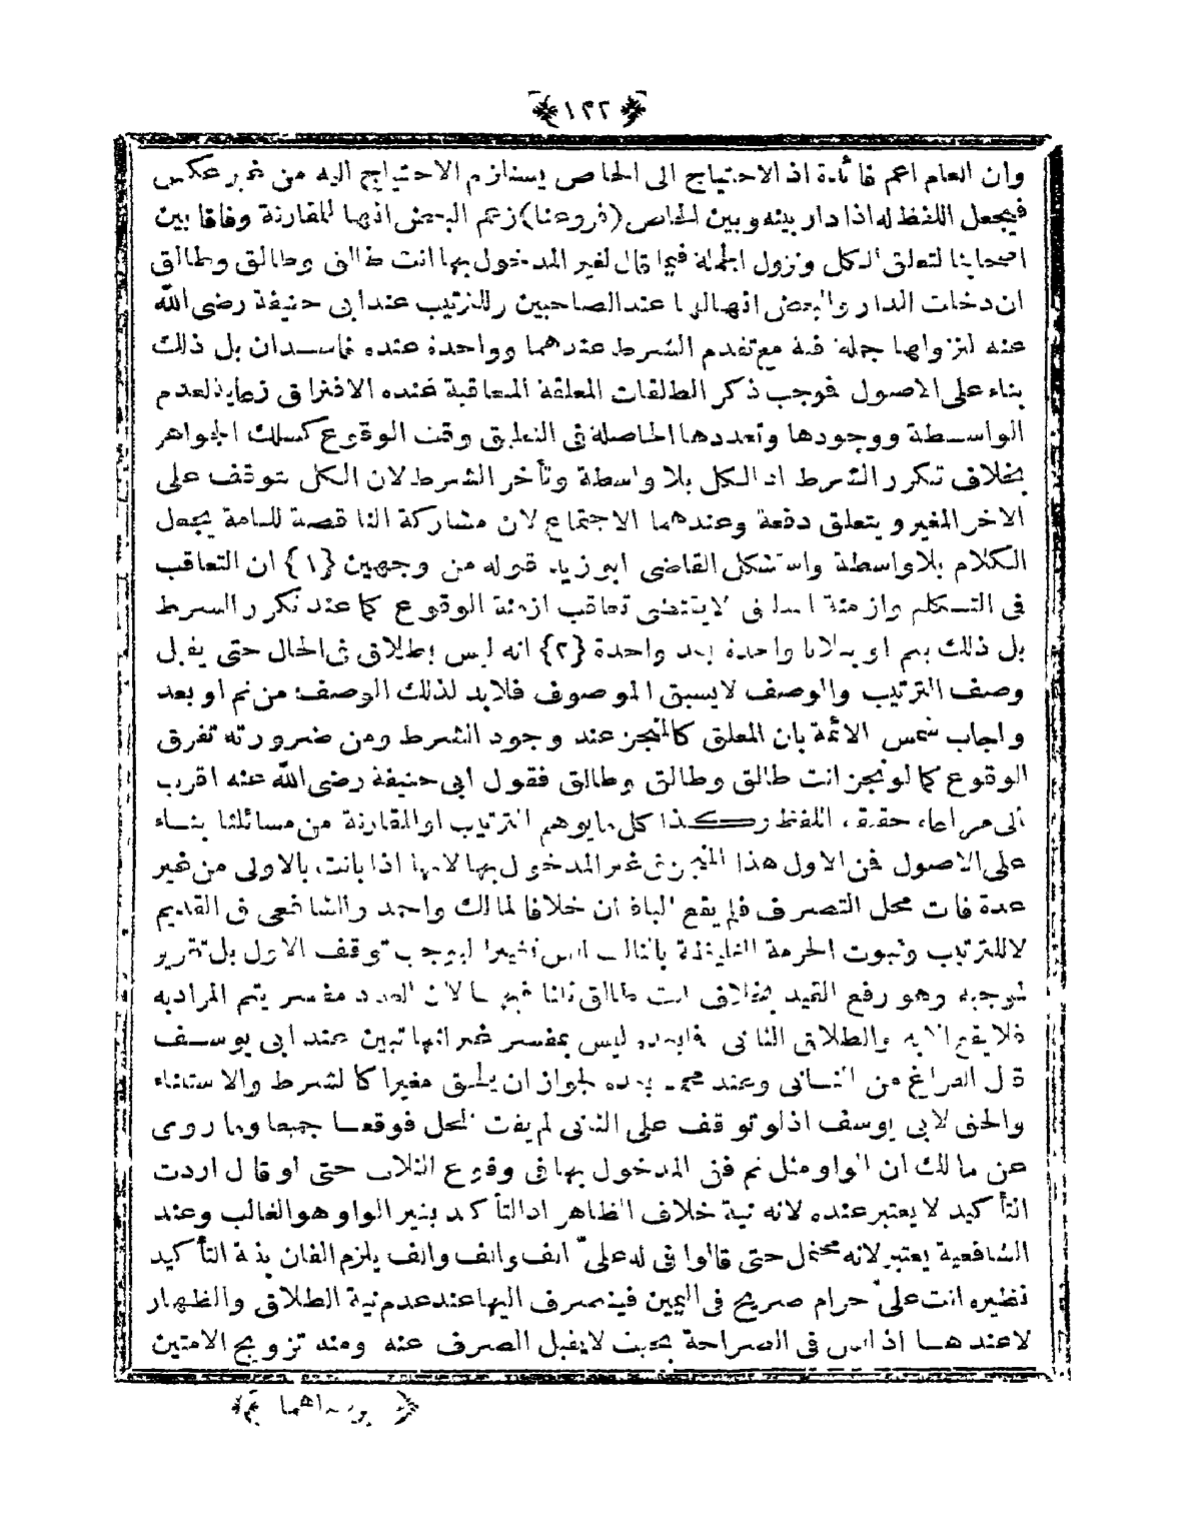 ﴿ ١٣٢ ﴾
وان العام اعم فائدة اذ الاحتياج الى الخاص يستلزم الاحتياج اليه من غير عكس
فيجعل اللفظ له اذا دار بينه وبين الخاص (فروعنا) زعم البعض انها للمقارنة وفاقا بين
اصحابنا لتعلق الكل ونزول الجملة فيما قال لغير المدخول بها انت طالق وطالق وطالق
ان دخلت الدار والبعض انها لها عند الصاحبين وللترتيب عند ابى حنيفة رضى الله
عنه لنزولها جملة فيه مع تقدم الشرط عندهما وواحدة عنده فاسدان بل ذلك
بناء على الاصول فموجب ذكر الطلقات المعلقة المتعاقبة عنده الافتراق رعاية لعدم
الواسطة ووجودها وتعددها الحاصلة فى التعليق وقت الوقوع كسلك الجواهر
بخلاف تكرر الشرط اذ الكل بلا واسطة وتأخر الشرط لان الكل يتوقف على
الاخر المغير ويتعلق دفعة وعندهما الاجتماع لان مشاركة الناقصة للتامة يجعل
الكلام بلا واسطة واستشكل القاضى ابوزيد قوله من وجهين {١} ان التعاقب
فى التكلم وازمنة لا يقتضى تعاقب ازمنة الوقوع كما عند تكرر الشرط
بل ذلك بثم او واحدة بعد واحدة {٢} انه ليس بطلاق فى الحال حتى يقبل
وصف الترتيب والوصف لا يسبق الموصوف فلا بد لذلك الوصف من ثم او بعد
واجاب شمس الائمة بان المعلق كالمنجز عند وجود الشرط ومن ضرورته تفرق
الوقوع كما لو نجز انت طالق وطالق وطالق فقول ابى حنيفة رضى الله عنه اقرب
الى مراعاة حقيقة اللفظ وكذا كل ما يوهم الترتيب او المقارنة من مسائلنا بناء
على الاصول فمن الاول هذا المنجز فى غير المدخول بها لانها اذا بانت بالاولى من غير
عدة فات محل التصرف فلم يقع الباقيان خلافا لمالك واحمد والشافعى فى القديم
لا للترتيب وثبوت الحرمة الغليظة بالثالث ليس تغييرا ليوجب توقف الاول بل تقرير
موجبه وهو رفع القيد بخلاف انت طالق ثلثا لان العدد مفسر يتم المراد به
فلا يقع الا به والطلاق الثانى فما بعده ليس بمفسر غير انها تبين عند ابى يوسف
قبل الفراغ من الثانى وعند محمد بعده لجواز ان يلحق مغيرا كالشرط والاستثناء
والحق لابى يوسف اذ لو توقف على الثانى لم يفت المحل فوقعا جميعا وما روى
عن مالك ان الواو مثل ثم ففى المدخول بها فى وقوع الثلاث حتى لو قال اردت
التأكيد لا يعتبر عنده لانه نية خلاف الظاهر اذ التأكيد بغير الواو هو الغالب وعند
الشافعية يعتبر لانه محتمل حتى قالوا فى له علىّ الف والف والف يلزم الفان بنية التأكيد
نظيره انت علىّ حرام صريح فى اليمين فينصرف اليها عند عدم نية الطلاق والظهار
لا عندهما اذ ليس فى الصراحة بحيث لا يقبل الصرف عنه ومنه تزويج الامتين